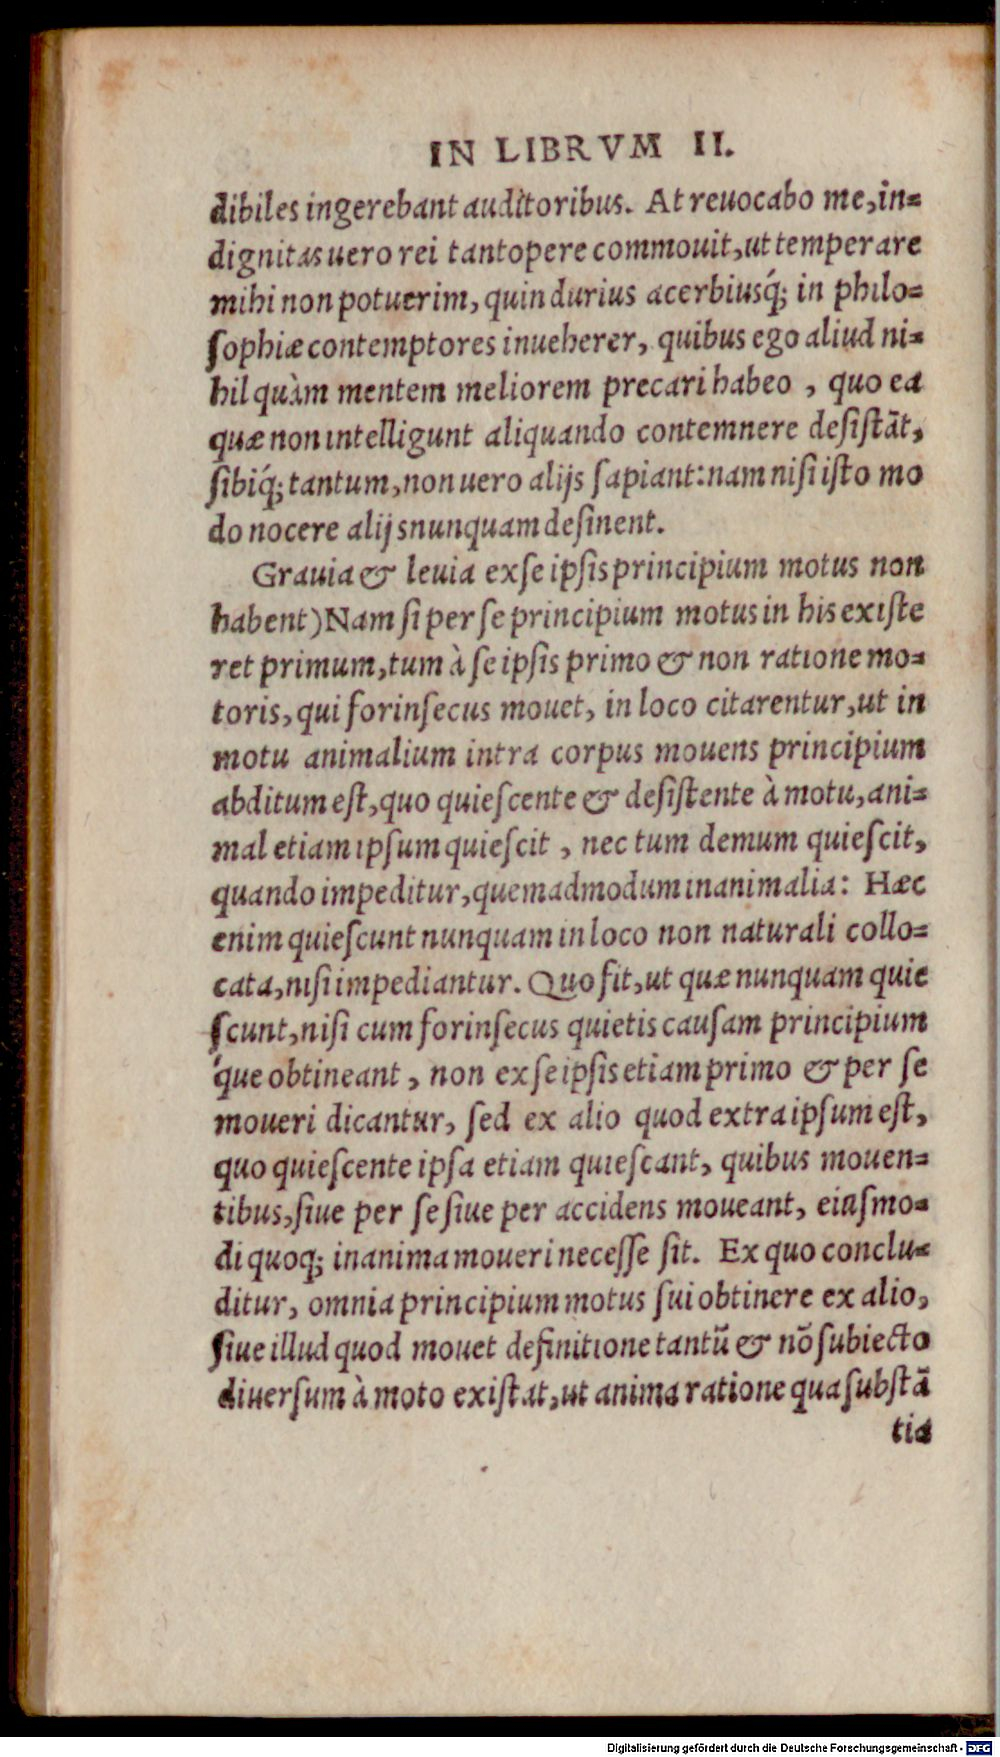 IN LIBRVM II.
dibiles ingerebant auditoribus. At reuocabo me, in=
dignitas uero rei tantopere commouit, ut temperare
mihi non potuerim, quin durius acerbiusq́; in philo=
ſophiæ contemptores inueherer, quibus ego aliud ni=
hil quàm mentem meliorem precari habeo , quo ea
quæ non intelligunt aliquando contemnere deſiſtāt,
ſibiq́; tantum, non uero alijs ſapiant: nam niſi iſto mo
do nocere alijs nunquam deſinent.
Grauia & leuia ex ſe ipſis principium motus non
habent) Nam ſi per ſe principium motus in his exiſte
ret primum, tum à ſe ipſis primo & non ratione mo=
toris, qui forinſecus mouet, in loco citarentur, ut in
motu animalium intra corpus mouens principium
abditum eſt, quo quieſcente & deſiſtente à motu, ani=
mal etiam ipſum quieſcit , nec tum demum quieſcit,
quando impeditur, quemadmodum inanimalia: Hæc
enim quieſcunt nunquam in loco non naturali collo=
cata, niſi impediantur. Quo fit, ut quæ nunquam quie
ſcunt, niſi cum forinſecus quietis cauſam principium
q́ue obtineant , non ex ſe ipſis etiam primo & per ſe
moueri dicantur, ſed ex alio quod extra ipſum eſt,
quo quieſcente ipſa etiam quieſcant, quibus mouen=
tibus, ſiue per ſe ſiue per accidens moueant, eiuſmo=
di quoq; inanima moueri neceſſe ſit. Ex quo conclu=
ditur, omnia principium motus ſui obtinere ex alio,
ſiue illud quod mouet definitione tantū & nō ſubiecto
diuerſum à moto exiſtat, ut anima ratione qua ſubſtā
tia
Digitalisierung gefördert durch die Deutsche Forschungsgemeinschaft - DFG